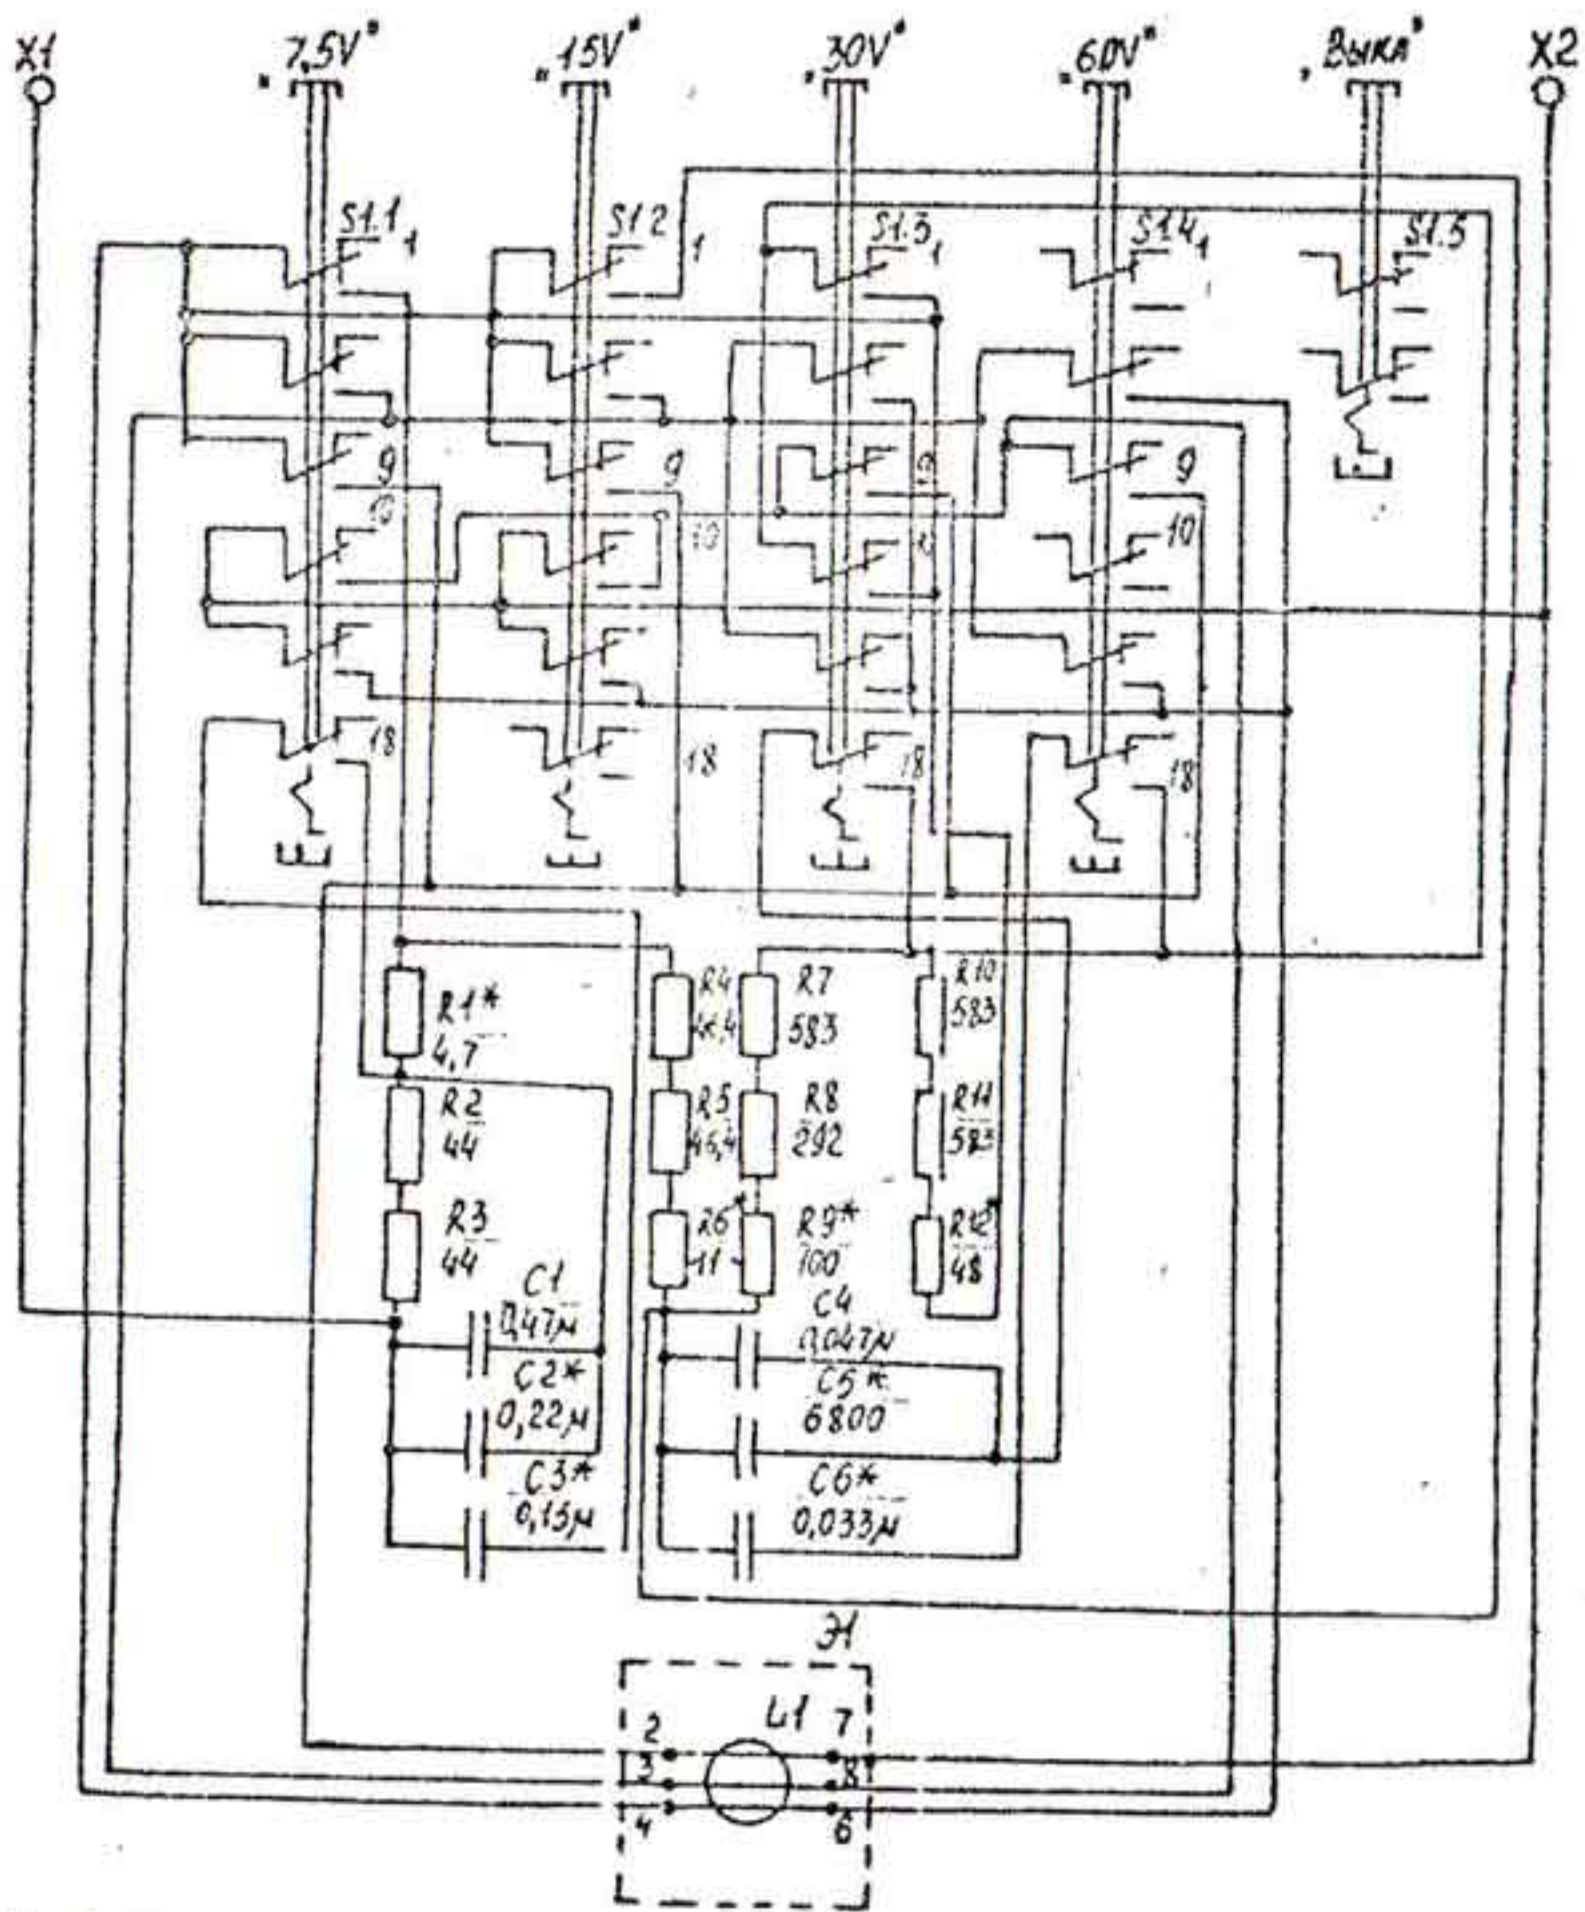 X1
"7,5V"
"15V"
"30V"
"60V"
"Выкл"
X2
S1.1 1
S1.2 1
S1.3 1
S1.4 1
S1.5
9
9
9
10
10
10
18
18
18
18
R1*
4,7
R2
44
R3
44
R4
R5
46,4
R6
11
R7
583
R8
292
R9*
100
R10
583
R11
583
R12
48
C1
0,47μ
C2*
0,22μ
C3*
0,15μ
C4
0,047μ
C5*
6800
C6*
0,033μ
Э1
L1
2
7
3
8
4
6